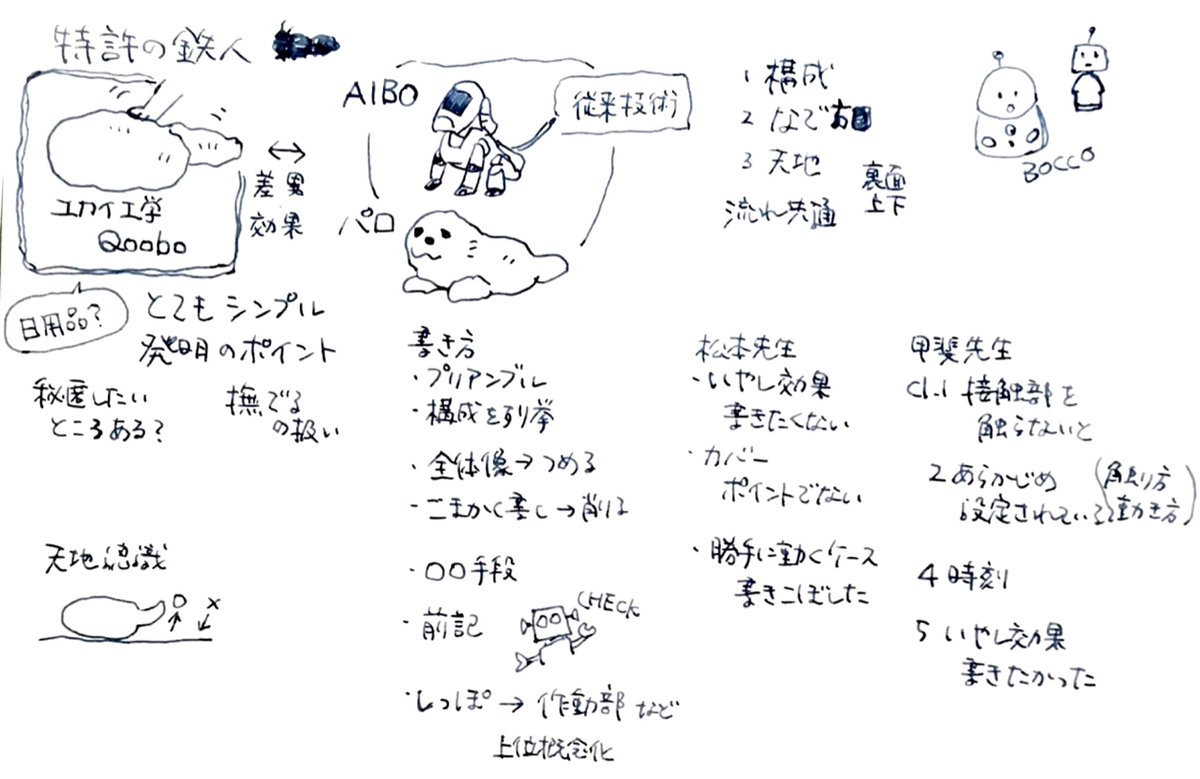 特許の鉄人
ユカイ工学
Qoobo
差異
効果
AIBO
パロ
従来技術
1 構成
2 なで方
3 天地
裏面
上下
流れ共通
BOCCO
日用品?
とてもシンプル
発明のポイント
秘匿したい
ところある?
撫でる
の扱い
天地認識
○ ×
書き方
・プリアンブル
・構成を列挙
・全体像→つめる
・こまかく書く→削る
・○○手段
・前記
CHECK
・しっぽ→作動部など
上位概念化
松本先生
・いやし効果
書きたくない
・カバー
ポイントでない
・勝手に動くケース
書きこぼした
甲斐先生
cl.1 接触部を
触らないと
2 あらかじめ
設定されている
(触り方
動き方)
4 時刻
5 いやし効果
書きたかった